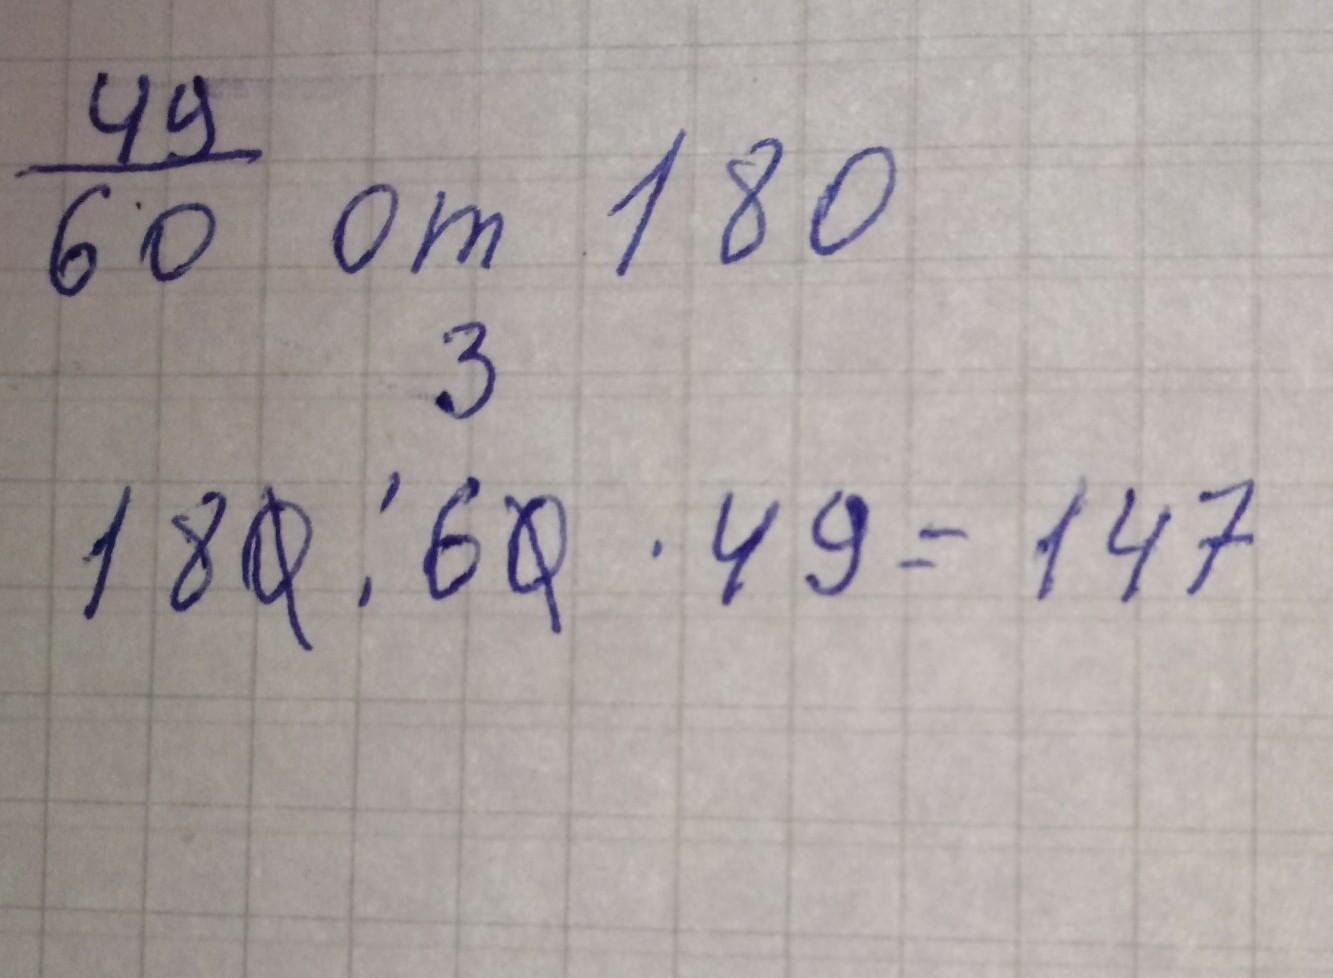 49
60 от 180
3
180 : 60 · 49 = 147